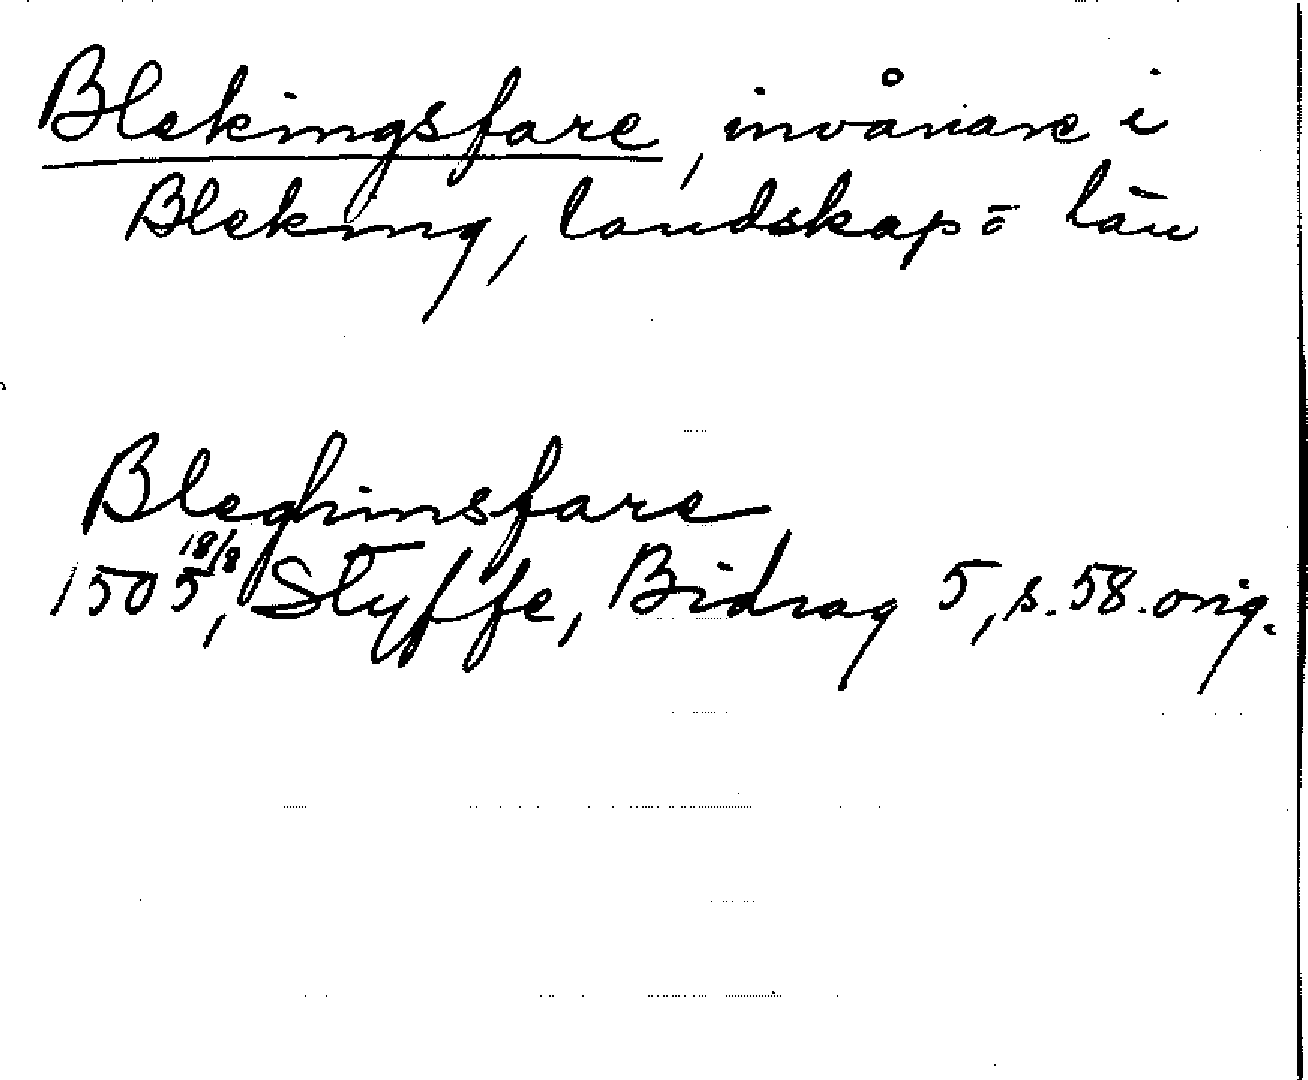 Blekingsfare, invånare i
Bleking, landskap o län
Bleghinsfare
1505 18/8, Styffe, Bidrag 5, s. 58. orig.